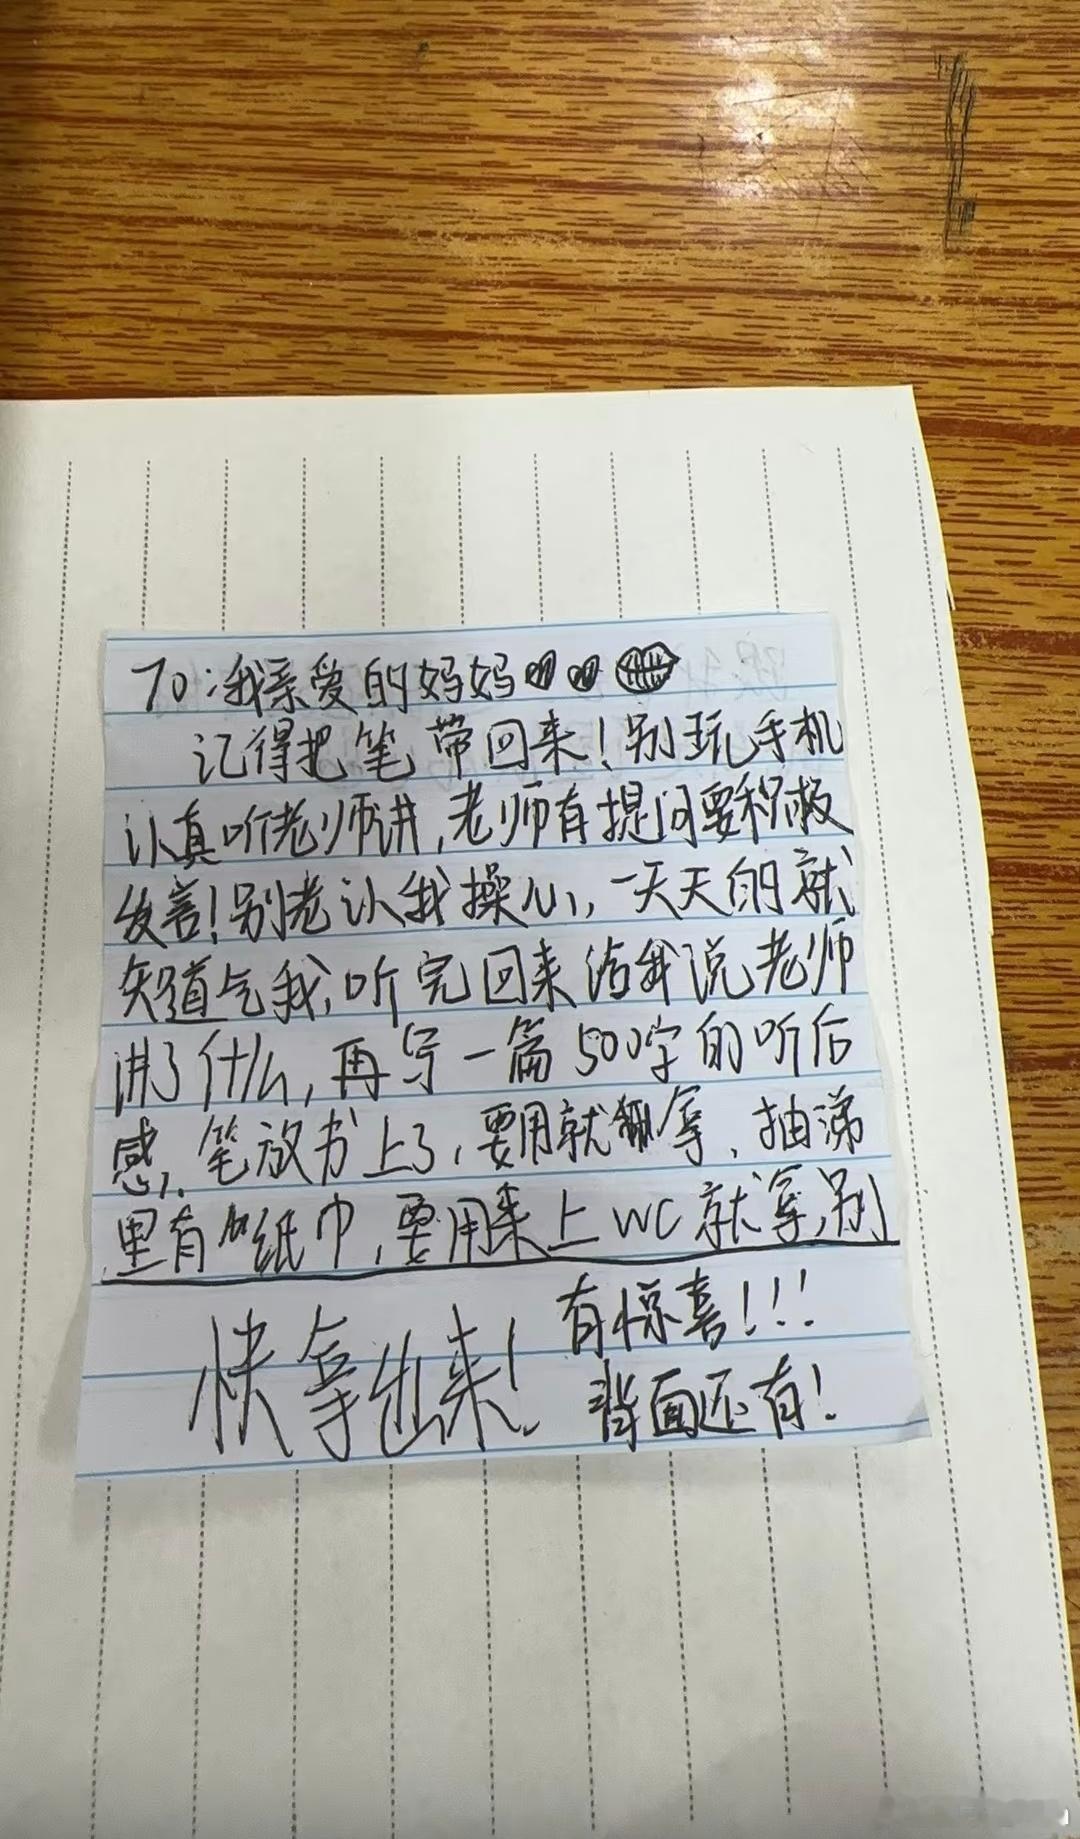 To:我亲爱的妈妈
记得把笔带回来!别玩手机
认真听老师讲,老师有提问要积极
发言!别老让我操心,一天天的就
知道气我,听完回来给我说老师
讲了什么,再写一篇500字的听后
感,笔放书上了,要用就拿,抽涕
里有纸巾,要用来上WC就拿,别
快拿出来! 有惊喜!!!
背面还有!